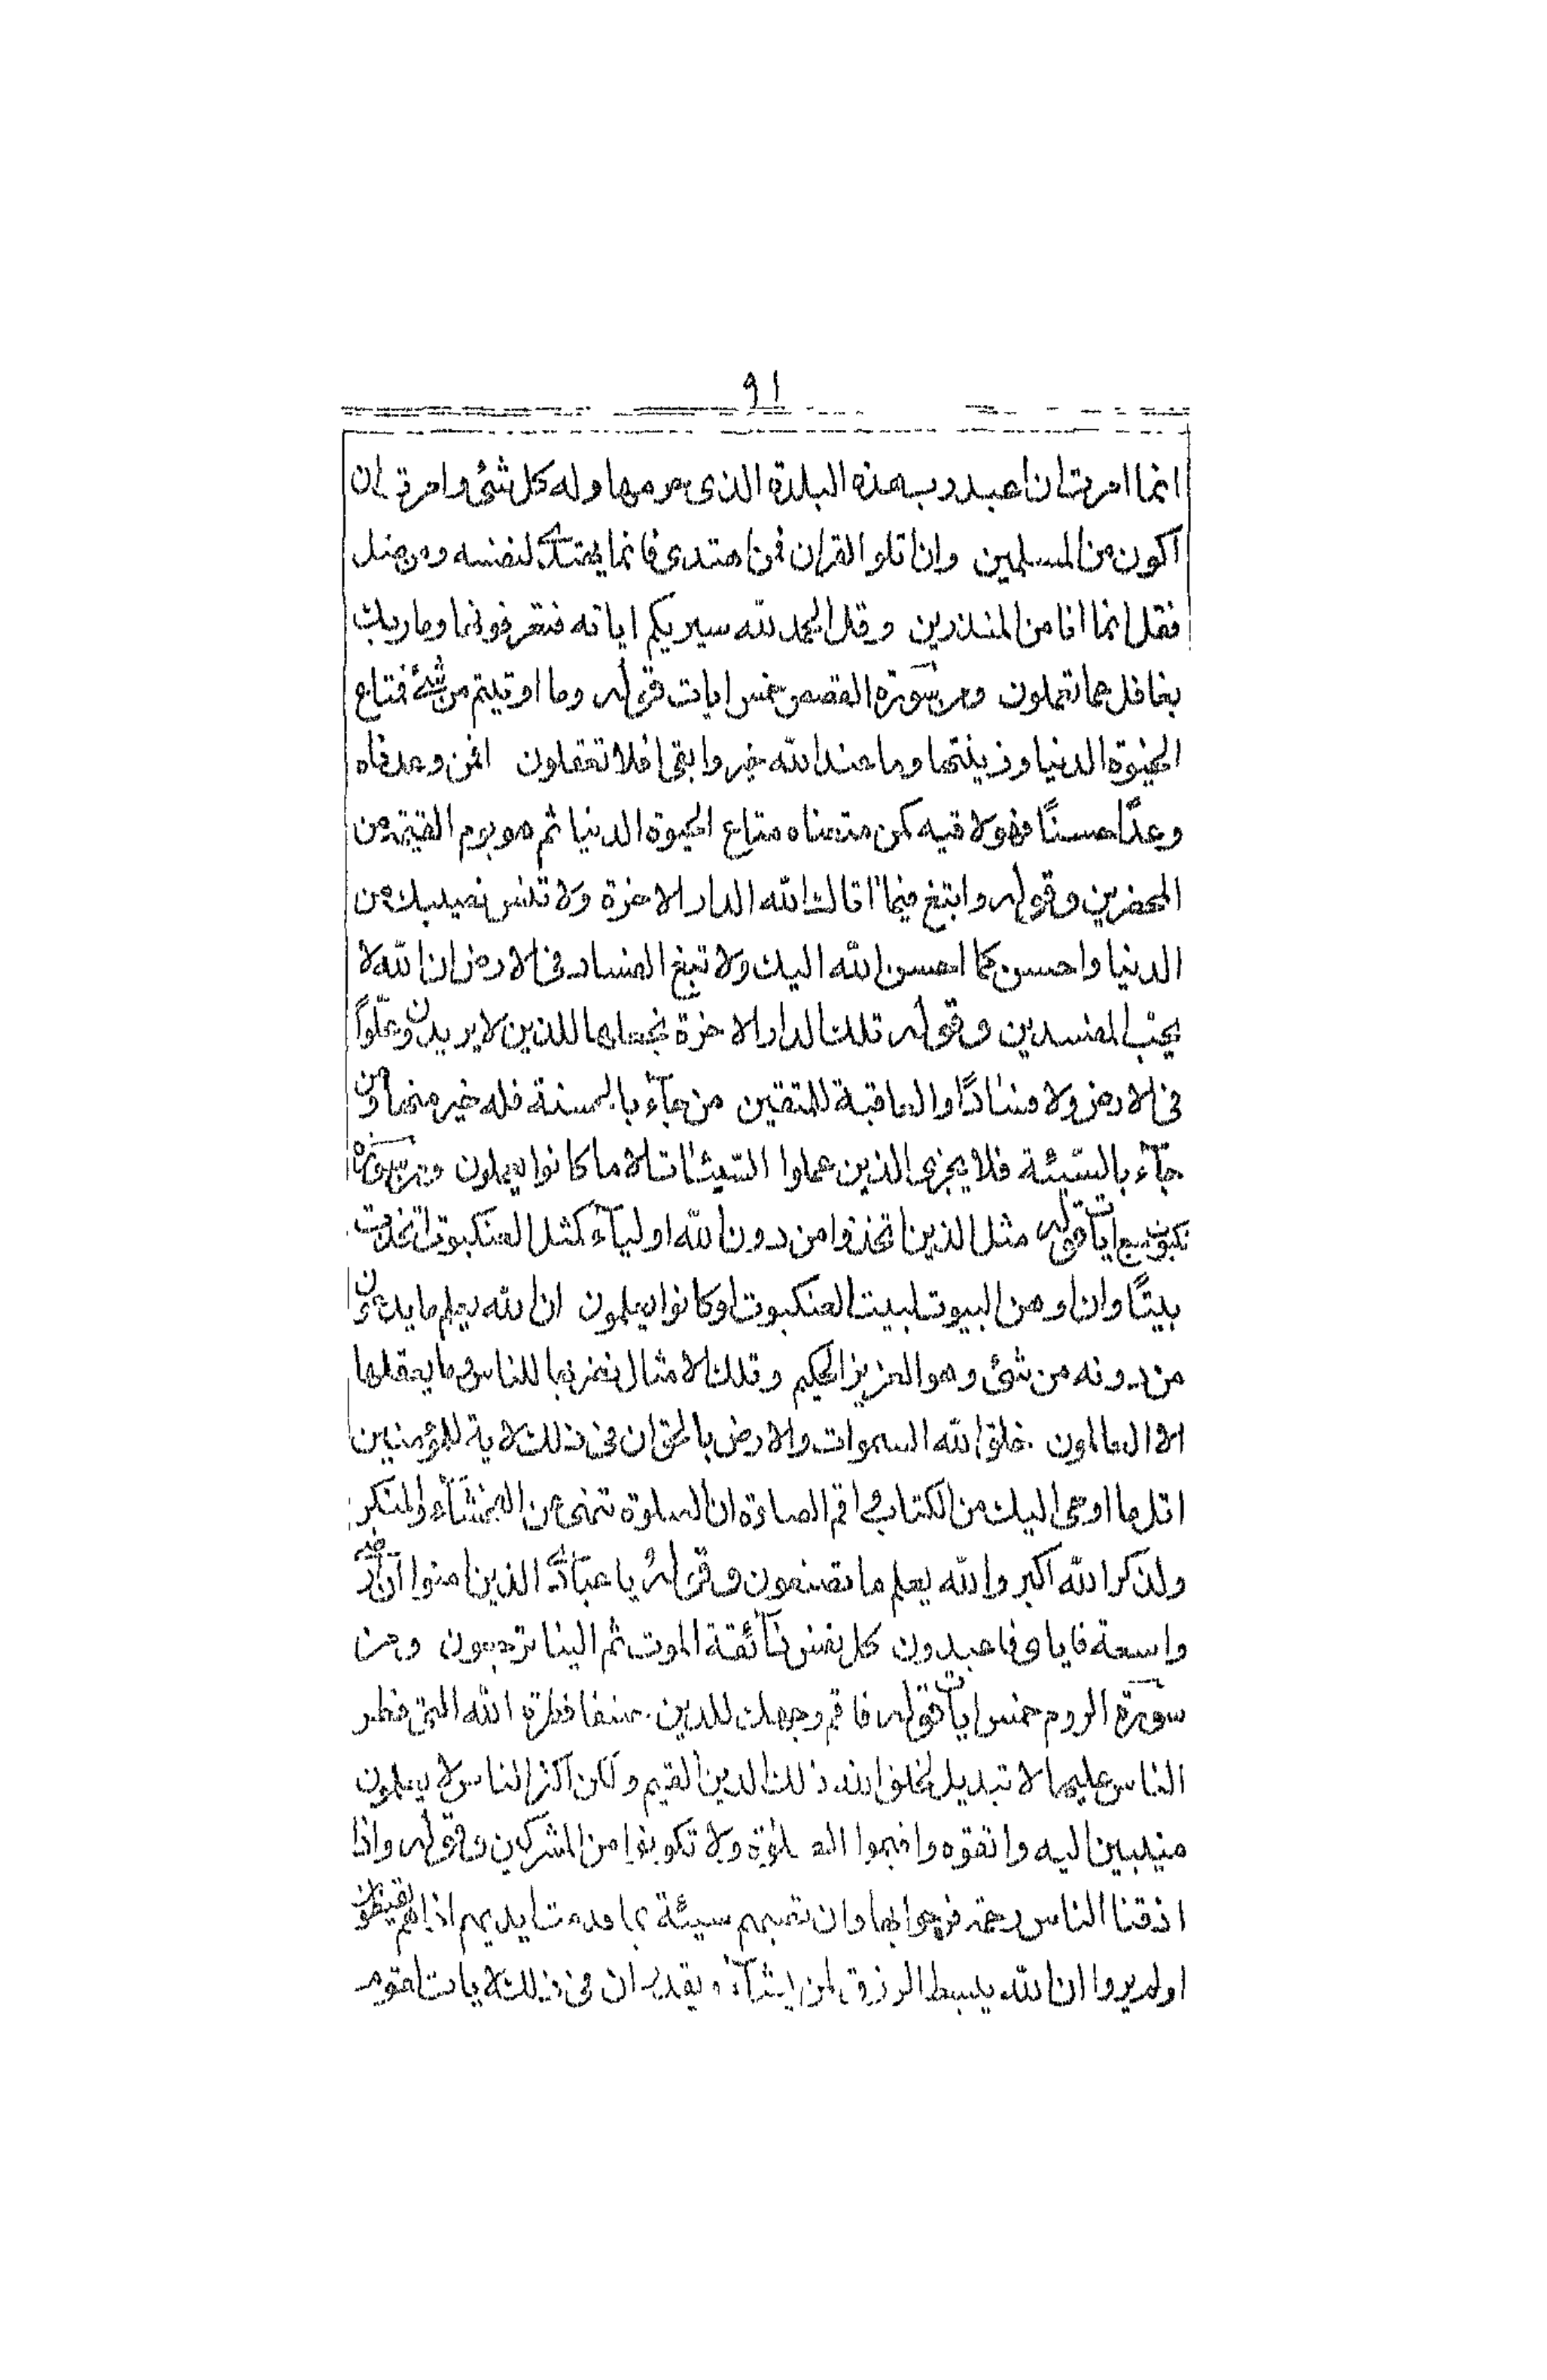 ٩١
انما امرت ان اعبد رب هذه البلدة الذى حرمها وله كل شئ وامرت ان
اكون من المسلمين وان اتلو القران فمن اهتدى فانما يهتدى لنفسه ومن ضل
فقل انما انا من المنذرين وقل الحمد لله سيريكم اياته فتعرفونها وما ربك
بغافل عما تعملون ومن سورة القصص خمس ايات قوله وما اوتيتم من شئ فمتاع
الحيوة الدنيا وزينتها وما عند الله خير وابقى افلا تعقلون افمن وعدناه
وعدًا حسنًا فهو لاقيه كمن متعناه متاع الحيوة الدنيا ثم هو يوم القيمة من
المحضرين وقوله وابتغ فيما اتاك الله الدار الاخرة ولا تنس نصيبك من
الدنيا واحسن كما احسن الله اليك ولا تبغ الفساد فى الارض ان الله لا
يحب المفسدين وقوله تلك الدار الاخرة نجعلها للذين لا يريدون علوًا
فى الارض ولا فسادًا والعاقبة للمتقين من جآء بالحسنة فله خير منها ومن
جآء بالسّيئة فلا يجزى الذين عملوا السّيئات الا ما كانوا يعملون ومن سورة
ايات قوله مثل الذين اتخذوا من دون الله اوليآء كمثل العنكبوت اتخذت
بيتًا وان اوهن البيوت لبيت العنكبوت لو كانوا يعلمون ان الله يعلم ما يدعون
من دونه من شئ وهو العزيز الحكيم وتلك الامثال نضربها للناس وما يعقلها
الا العالمون خلق الله السموات والارض بالحق ان فى ذلك لاية للمؤمنين
اتل ما اوحى اليك من الكتاب واقم الصلوة ان الصلوة تنهى عن الفحشآء والمنكر
ولذكر الله اكبر والله يعلم ما تصنعون وقوله يا عبادى الذين امنوا ان ارضى
واسعة فاياى فاعبدون كل نفس ذآئقة الموت ثم الينا ترجعون ومن
سورة الروم خمس ايات قوله فاقم وجهك للدين حنيفا فطرة الله التى فطر
الناس عليها لا تبديل لخلق الله ذلك الدين القيم ولكن اكثر الناس لا يعلمون
منيبين اليه واتقوه واقيموا الصلوة ولا تكونوا من المشركين وقوله واذا
اذقنا الناس رحمة فرحوا بها وان تصبهم سيئة بما قدمت ايديهم اذا هم يقنطون
اولم يروا ان الله يبسط الرزق لمن يشآء ويقدر ان فى ذلك لايات لقوم